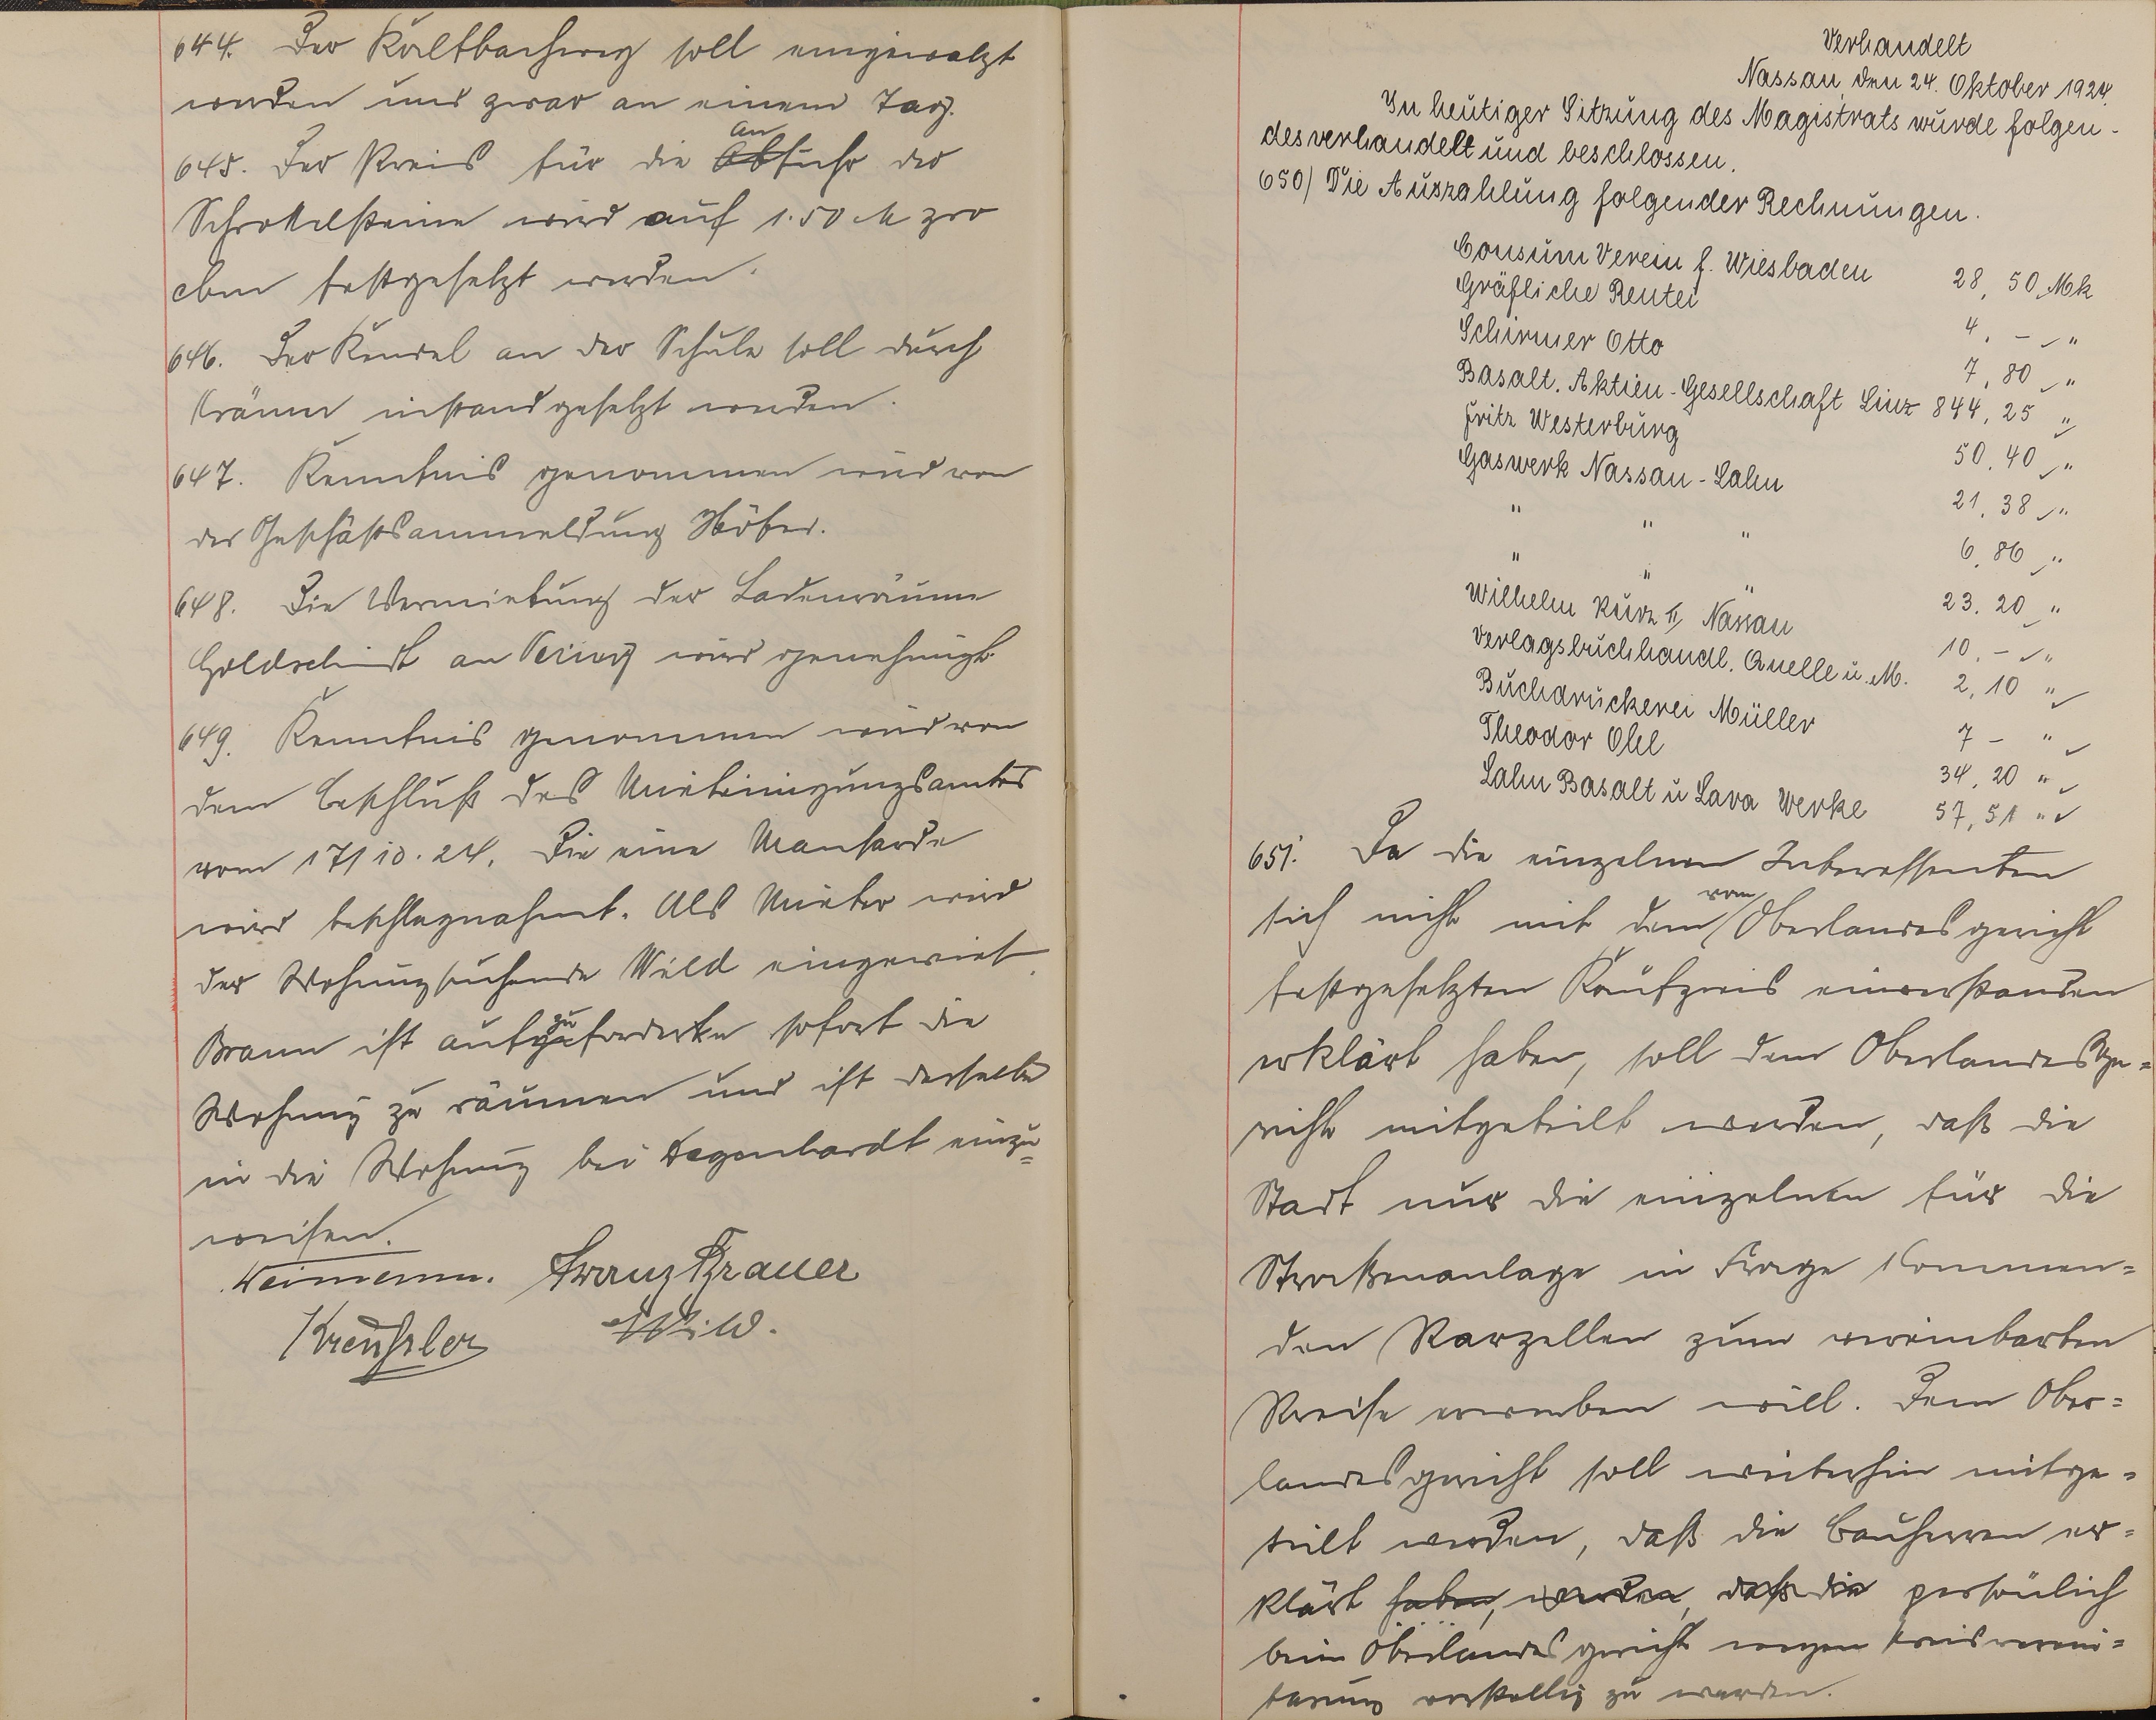 644. Der Kaltbachweg soll eingewalzt
werden und zwar an einem Tag.
645. Der Preis für die Abfuhr der
An
Schrottelsteine wird auf 1.50 M pro
cbm festgesetzt werden.
646. Der Kändel an der Schule soll durch
Krämer instandgesetzt werden.
647. Kenntnis genommen wird von
der Geschäftsanmeldung Stöber.
648. Die Vermietung der Ladenräume
Goldschmidt an wird genehmigt
649. Kenntnis genommen wird von
dem Beschluß des Mieteinigungsamtes
vom 17/10.24. Die eine Mansarde
wird beschlagnahmt. Als Mieter wird
der Wohnungsuchende Wild eingewiet.
Braun ist aufzuforderten sofort die
zu
Wohnung zu räumen und ist derselbe
in die Wohnung bei Degenhardt einzu=
weisen.
Weimann. Franz Brauer
Kreußler
Verhandelt
Nassau, den 24. Oktober 1924.
In heutiger Sitzung des Magistrats wurde folgen-
des verhandelt und beschlossen.
650) Die Auszahlung folgender Rechnungen.
Consum Verein f. Wiesbaden 28,50 Mk
Gräfliche Rentei 4,- "
Schirmer Otto 7,80 "
Basalt. Aktien-Gesellschaft Linz 844,25 "
Fritz Westerburg 50.40 "
Gaswerk Nassau-Lahn 21,38 "
" " " 6,86 "
" " " 23.20 "
Wilhelm Kurz II, Nassau 10.- "
Verlagsbuchhandl. Quelle u. M. 2,10 "
Buchdruckerei Müller 7 - "
Theodor Ohl 34,20 "
Lahn Basalt u Lava Werke 57,51 "
651. Da die einzelnen Interessenten
sich nicht mit dem vom Oberlandesgericht
festgesetzten Kaufpreis einverstanden
erklärt haben, soll dem Oberlandesge=
richt mitgeteilt werden, daß die
Stadt nur die einzelnen für die
Straßenanlage in Frage kommen=
den Parzellen zum vereinbarten
Preise erwerben will. Dem Ober=
landesgericht soll weiterhin mitge=
teilt werden, daß die Bauherren er=
klärt haben, werden, daß die persönlich
beim Oberlandesgericht wegen Preisverein=
barung vorstellig zu werden.